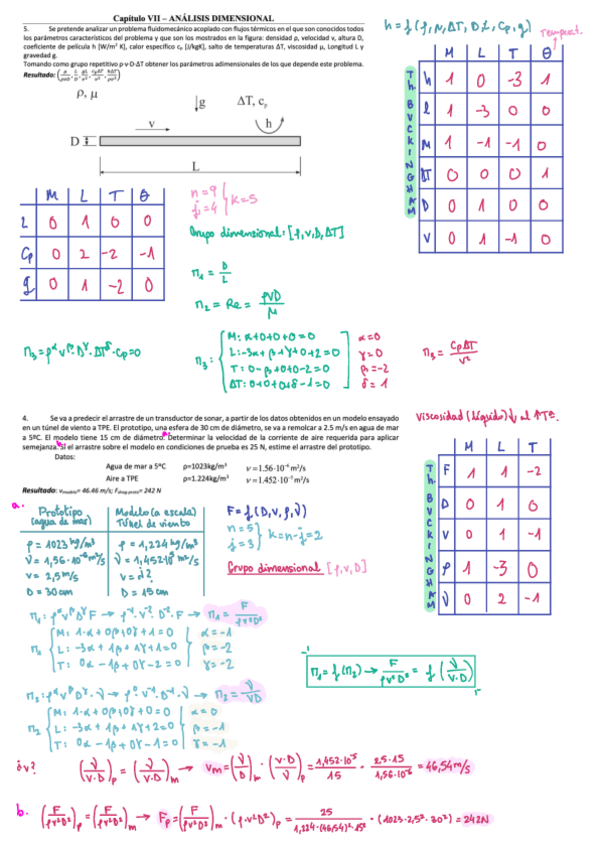 Capítulo VII – ANÁLISIS DIMENSIONAL
5. Se pretende analizar un problema fluidomecánico acoplado con flujos térmicos en el que son conocidos todos
los parámetros característicos del problema y que son los mostrados en la figura: densidad ρ, velocidad v, altura D,
coeficiente de película h [W/m² K], calor específico cₚ [J/kgK], salto de temperaturas ΔT, viscosidad μ, Longitud L y
gravedad g.
Tomando como grupo repetitivo ρ·v·D·ΔT obtener los parámetros adimensionales de los que depende este problema.
Resultado:
h = f(ρ, μ, ΔT, D, L, Cp, g)
Temperat.
ρ, μ
g
ΔT, cₚ
v
h
D
L
Th. BUCKINGHAM
M L T θ
h 1 0 -3 1
ρ 1 -3 0 0
μ 1 -1 -1 0
ΔT 0 0 0 1
D 0 1 0 0
V 0 1 -1 0
M L T θ
L 0 1 0 0
Cp 0 2 -2 -1
g 0 1 -2 0
n = 9
j = 4
k = 5
Grupo dimensional: [ρ, v, D, ΔT]
π₁ = D/L
π₂ = Re = ρVD/μ
π₃ = ρ^α v^β D^γ · ΔT^δ · Cp = 0
π₃:
M: α+0+0+0=0
L: -3α+β+γ+0+2=0
T: 0-β+0+0-2=0
ΔT: 0+0+0+δ-1=0
α=0
γ=0
β=-2
δ=1
π₃ = CpΔT/v²
4. Se va a predecir el arrastre de un transductor de sonar, a partir de los datos obtenidos en un modelo ensayado
en un túnel de viento a TPE. El prototipo, una esfera de 30 cm de diámetro, se va a remolcar a 2.5 m/s en agua de mar
a 5ºC. El modelo tiene 15 cm de diámetro. Determinar la velocidad de la corriente de aire requerida para aplicar
semejanza. Si el arrastre sobre el modelo en condiciones de prueba es 25 N, estime el arrastre del prototipo.
a.
b.
Datos:
Agua de mar a 5ºC ρ=1023kg/m³ ν=1.56·10⁻⁶ m²/s
Aire a TPE ρ=1.224kg/m³ ν=1.452·10⁻⁵ m²/s
Resultado: v_modelo= 46.46 m/s; F_drag,proto= 242 N
Viscosidad (líquido) ↓ al ↑Tª.
Th. BUCKINGHAM
M L T
F 1 1 -2
D 0 1 0
V 0 1 -1
ρ 1 -3 0
ν 0 2 -1
a.
Prototipo (agua de mar)
Modelo (a escala) Túnel de viento
ρ = 1023 kg/m³ ρ = 1,224 kg/m³
ν = 1,56·10⁻⁶ m²/s ν = 1,452·10⁻⁵ m²/s
v = 2,5 m/s v = ¿?
D = 30 cm D = 15 cm
F = f(D, v, ρ, ν)
n = 5
j = 3
k = n-j = 2
Grupo dimensional [ρ, v, D]
π₁: ρ^α v^β D^γ F → ρ⁻¹·v⁻²·D⁻²·F → π₁ = F/ρv²D²
π₁
M: 1·α+0β+0γ+1=0
L: -3α+1β+1γ+1=0
T: 0α-1β+0γ-2=0
α=-1
β=-2
γ=-2
π₂: ρ^α v^β D^γ·ν → ρ⁰·v⁻¹·D⁻¹·ν → π₂ = ν/VD
π₂
M: 1·α+0β+0γ+0=0
L: -3α+1β+1γ+2=0
T: 0α-1β+0γ-1=0
α=0
β=-1
γ=-1
π₁ = f(π₂) → F/ρv²D² = f(ν/V·D)
¿v? (ν/V·D)p = (ν/V·D)m → Vm = (ν/D)m · (V·D/ν)p = 1,452·10⁻⁵/15 · 2,5·15/1,56·10⁻⁶ = 46,54 m/s
b. (F/ρv²D²)p = (F/ρv²D²)m → Fp = (F/ρv²D²)m · (ρ·v²D²)p = 25/1,224·(46,54)²·15² · (1023·2,5²·30²) = 242N